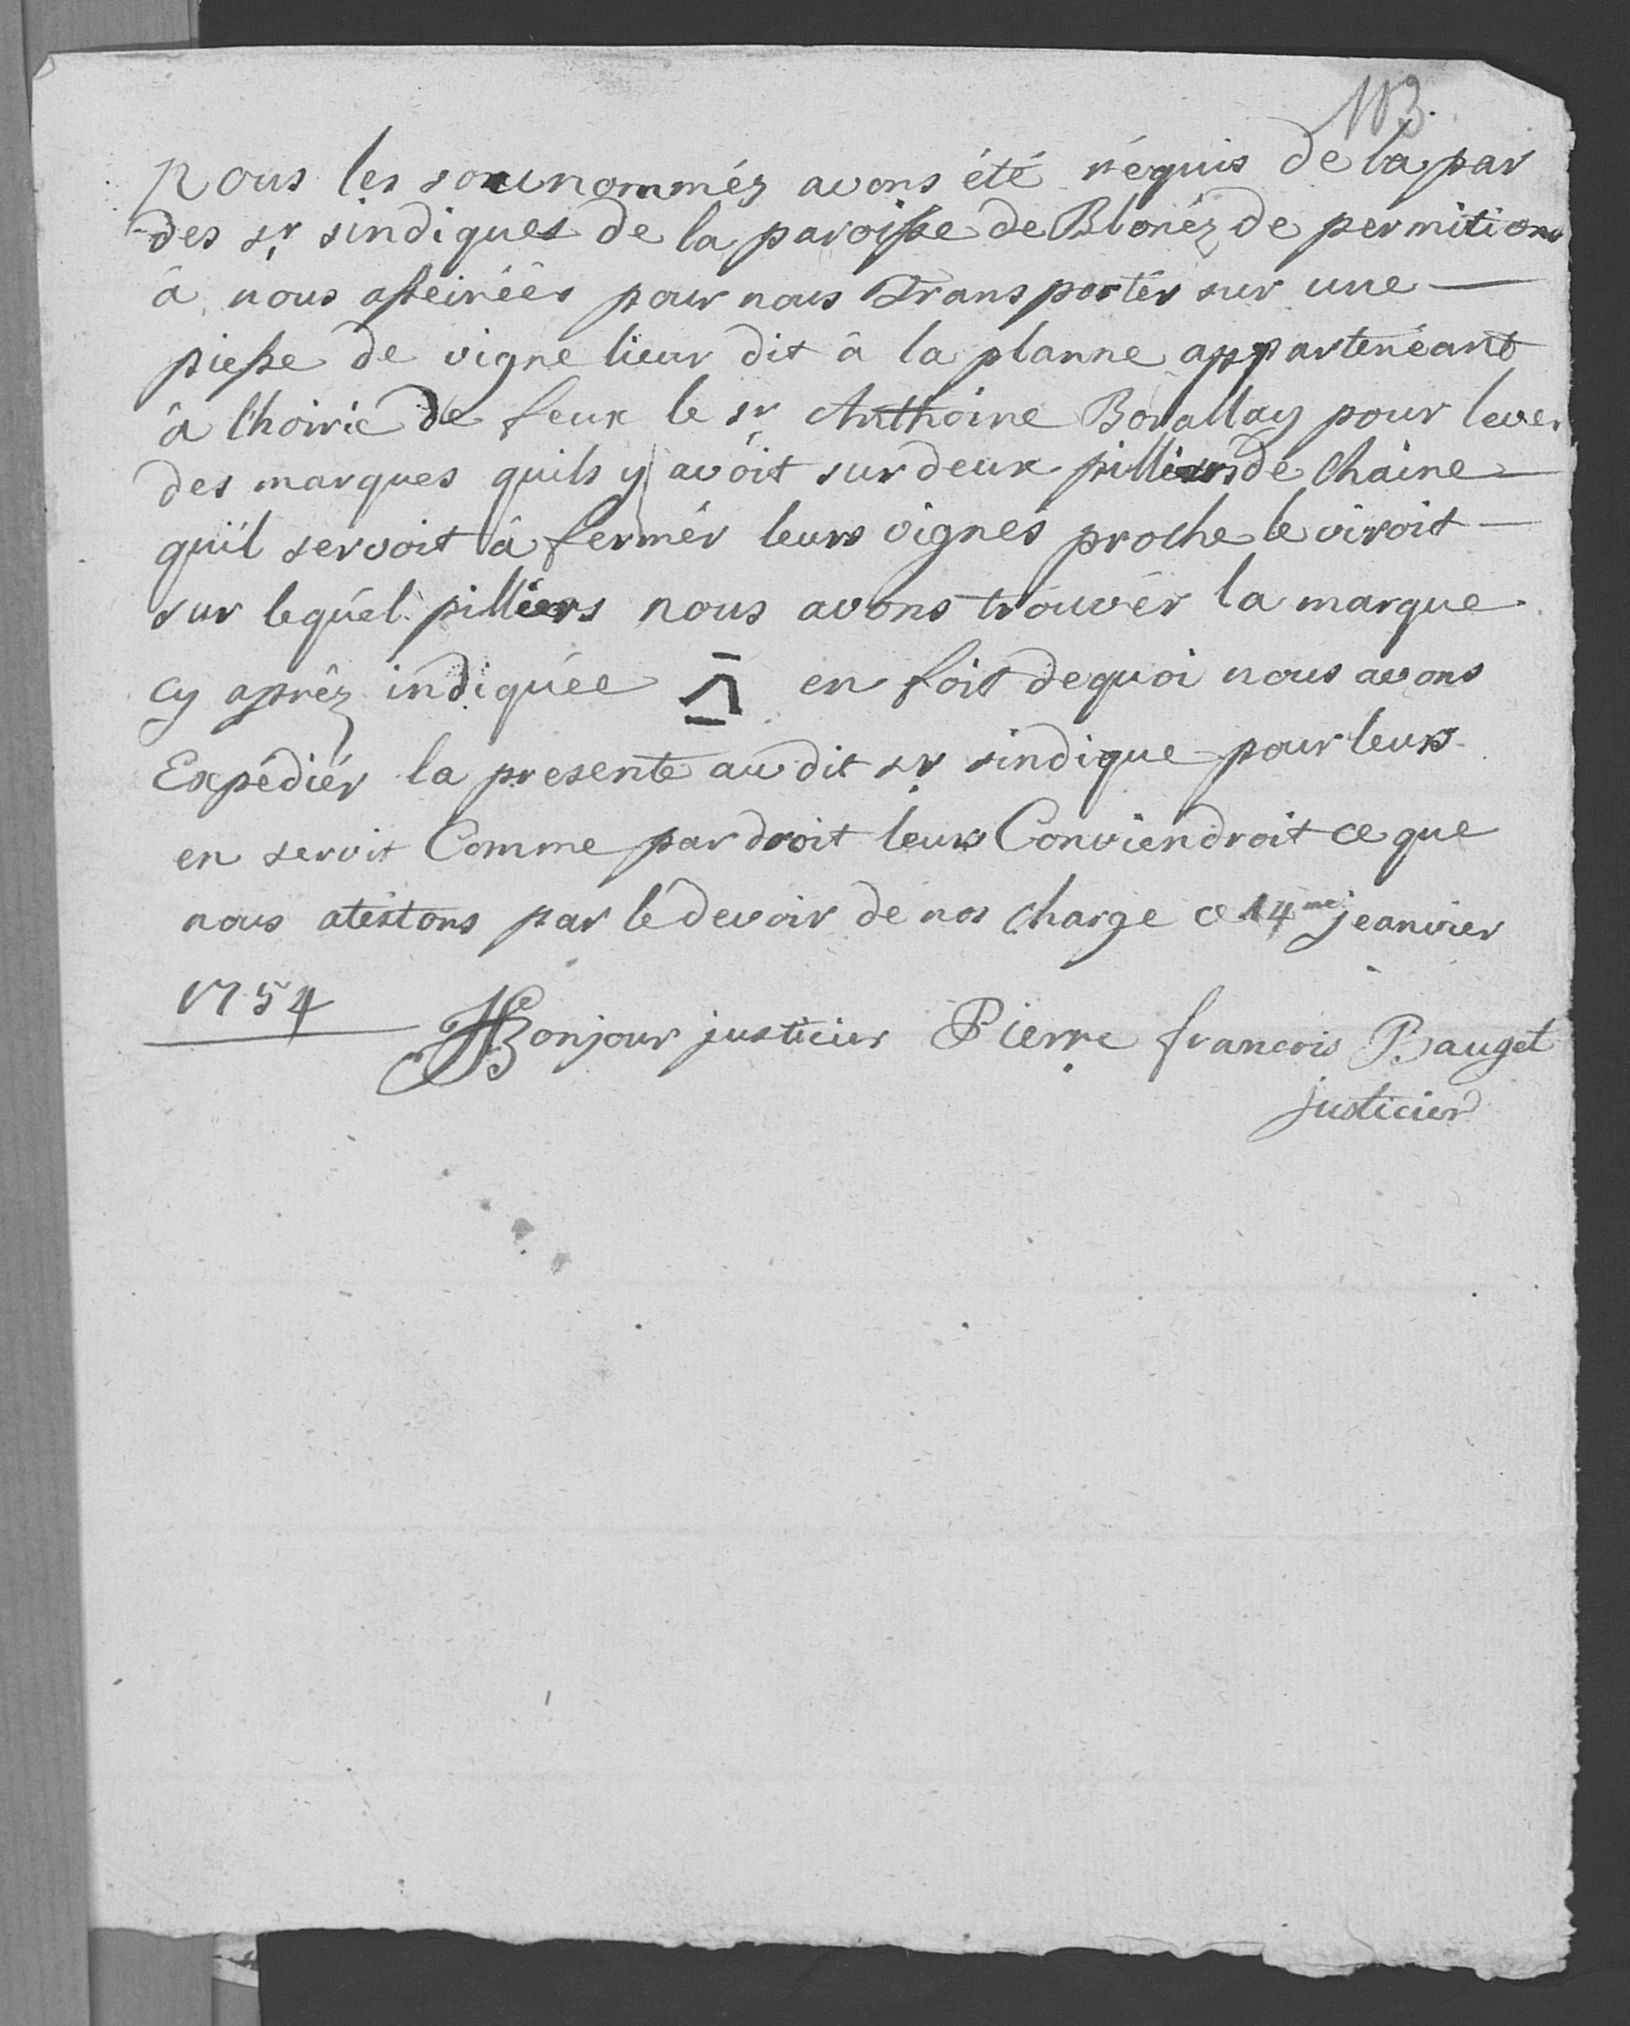 113.
Nous les sounommés avons été réquis de la par
des sr sindiques de la paroisse de Blonéz de permitions
â nous asseiréés pour nous Transportér sur une
piesse de vigne lieur dit â la planne appartenéant
â l'hoirie de feux le sr Anthoine Bovallay pour lever
des marques quils y avoit sur deux pilliers de Chaine
qu'il servoit â fermér leurs vignes proche le viroit
sur lequél pilliers nous avons trouvér la marque
cy aprêz indiquée en foit dequoi nous avons
Expédiér la presente au dit sr sindique pour leurs
en servir Comme par droit leurs Conviendroit ce que
nous atestons par lé devoir de nos charge ce 14me jeanvier
1754
Bonjour justicier Pierre francois Bauget
justicier